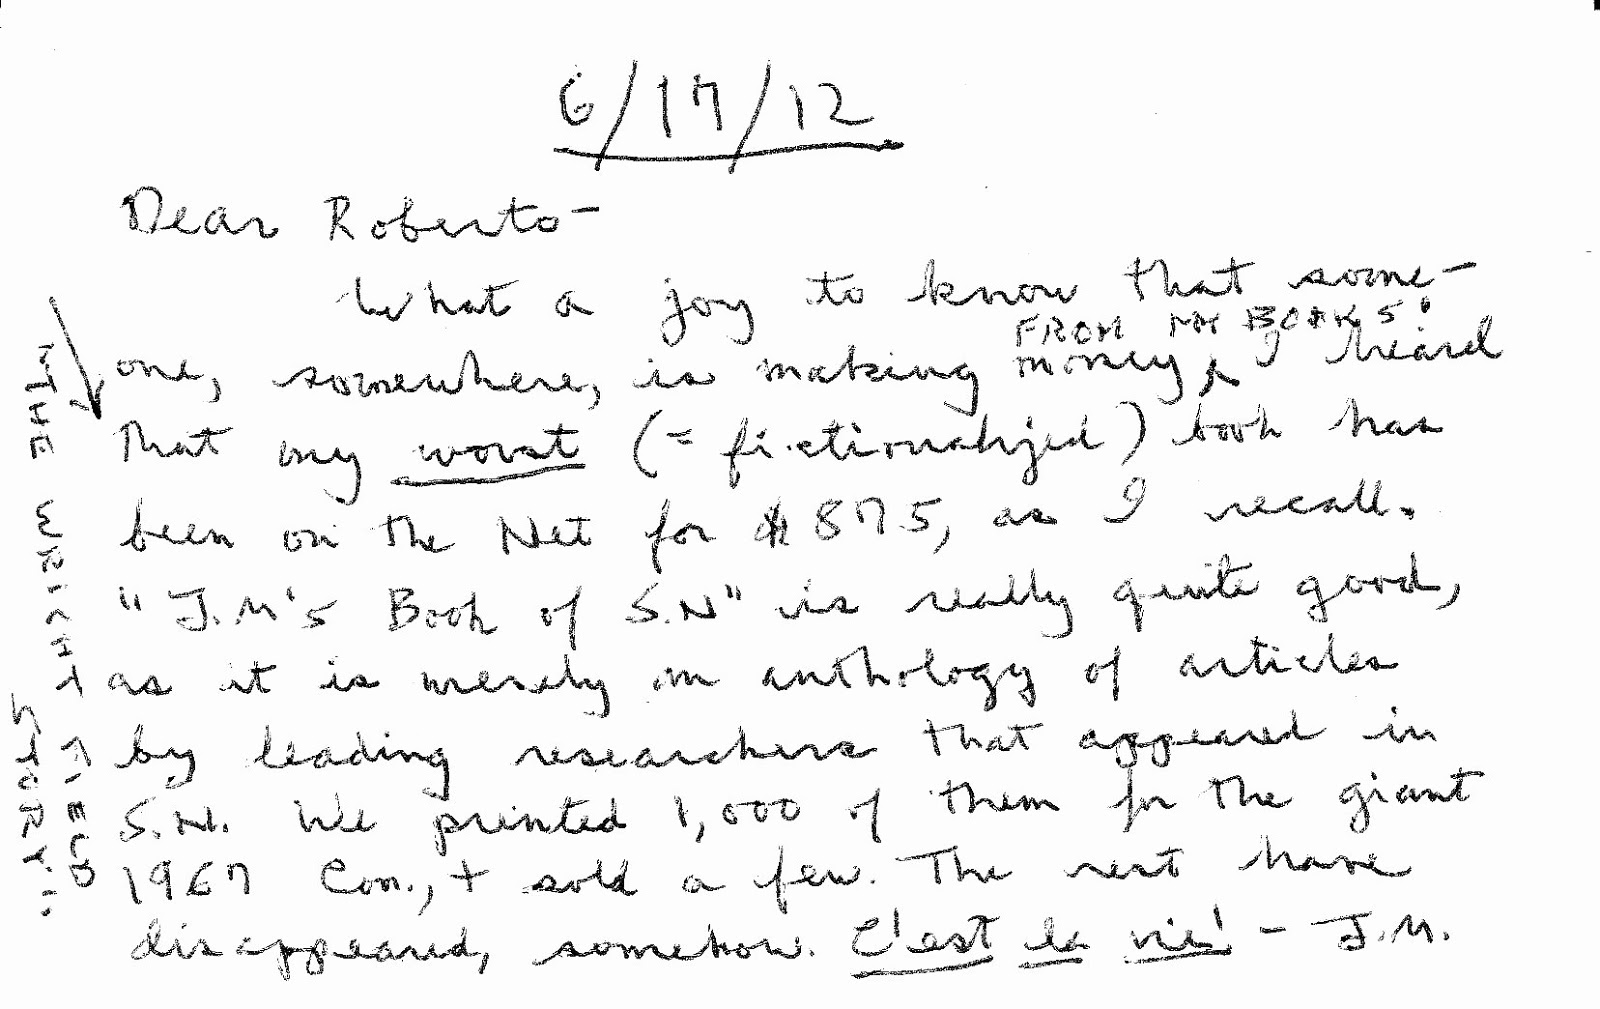 6/17/12
Dear Roberto-
What a joy to know that some-
FROM MY BOOKS!
one, somewhere, is making money, I heard
that my worst (= fictionalized) book has
been on the Net for $875, as I recall.
"J.M's Book of S.N" is really quite good,
as it is merely an anthology of articles
by leading researchers that appeared in
S.N. We printed 1,000 of them for the giant
1967 Con., + sold a few. The rest have
disappeared, somehow. C'est la vie! - J.M.
THE
WRIGHT
FIELD
STORY!